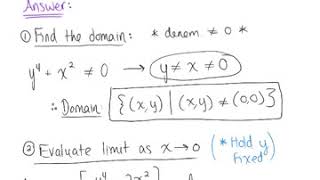 Answer:
① Find the domain: * denom ≠ 0 *
y⁴ + x² ≠ 0 → y ≠ x ≠ 0
∴ Domain: {(x,y) | (x,y) ≠ (0,0)}
② Evaluate limit as x → 0 (* Hold y fixed)